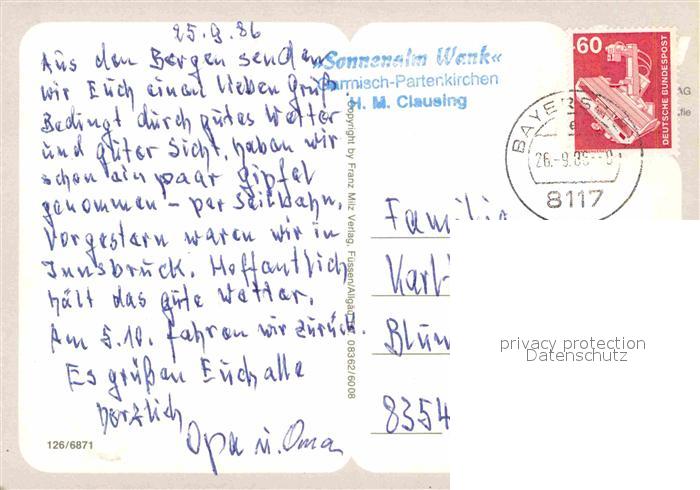 25.9.86
Aus den Bergen senden
wir Euch einen lieben Gruß.
Bedingt durch gutes Wetter
und guter Sicht, haben wir
schon ein paar Gipfel
genommen – per Seilbahn.
Vorgestern waren wir in
Innsbruck. Hoffentlich
hält das gute Wetter.
Am 5.10. fahren wir zurück.
Es grüßen Euch alle
herzlich
Opa u. Oma
126/6871
»Sonnenalm Wank«
Garmisch-Partenkirchen
H. M. Clausing
Copyright by Franz Milz Verlag, Füssen/Allgäu
08362/6008
60
DEUTSCHE BUNDESPOST
BAYERS
e
26.-9.86
8117
AG
Familie
Karl-
Blum
8354
privacy protection
Datenschutz